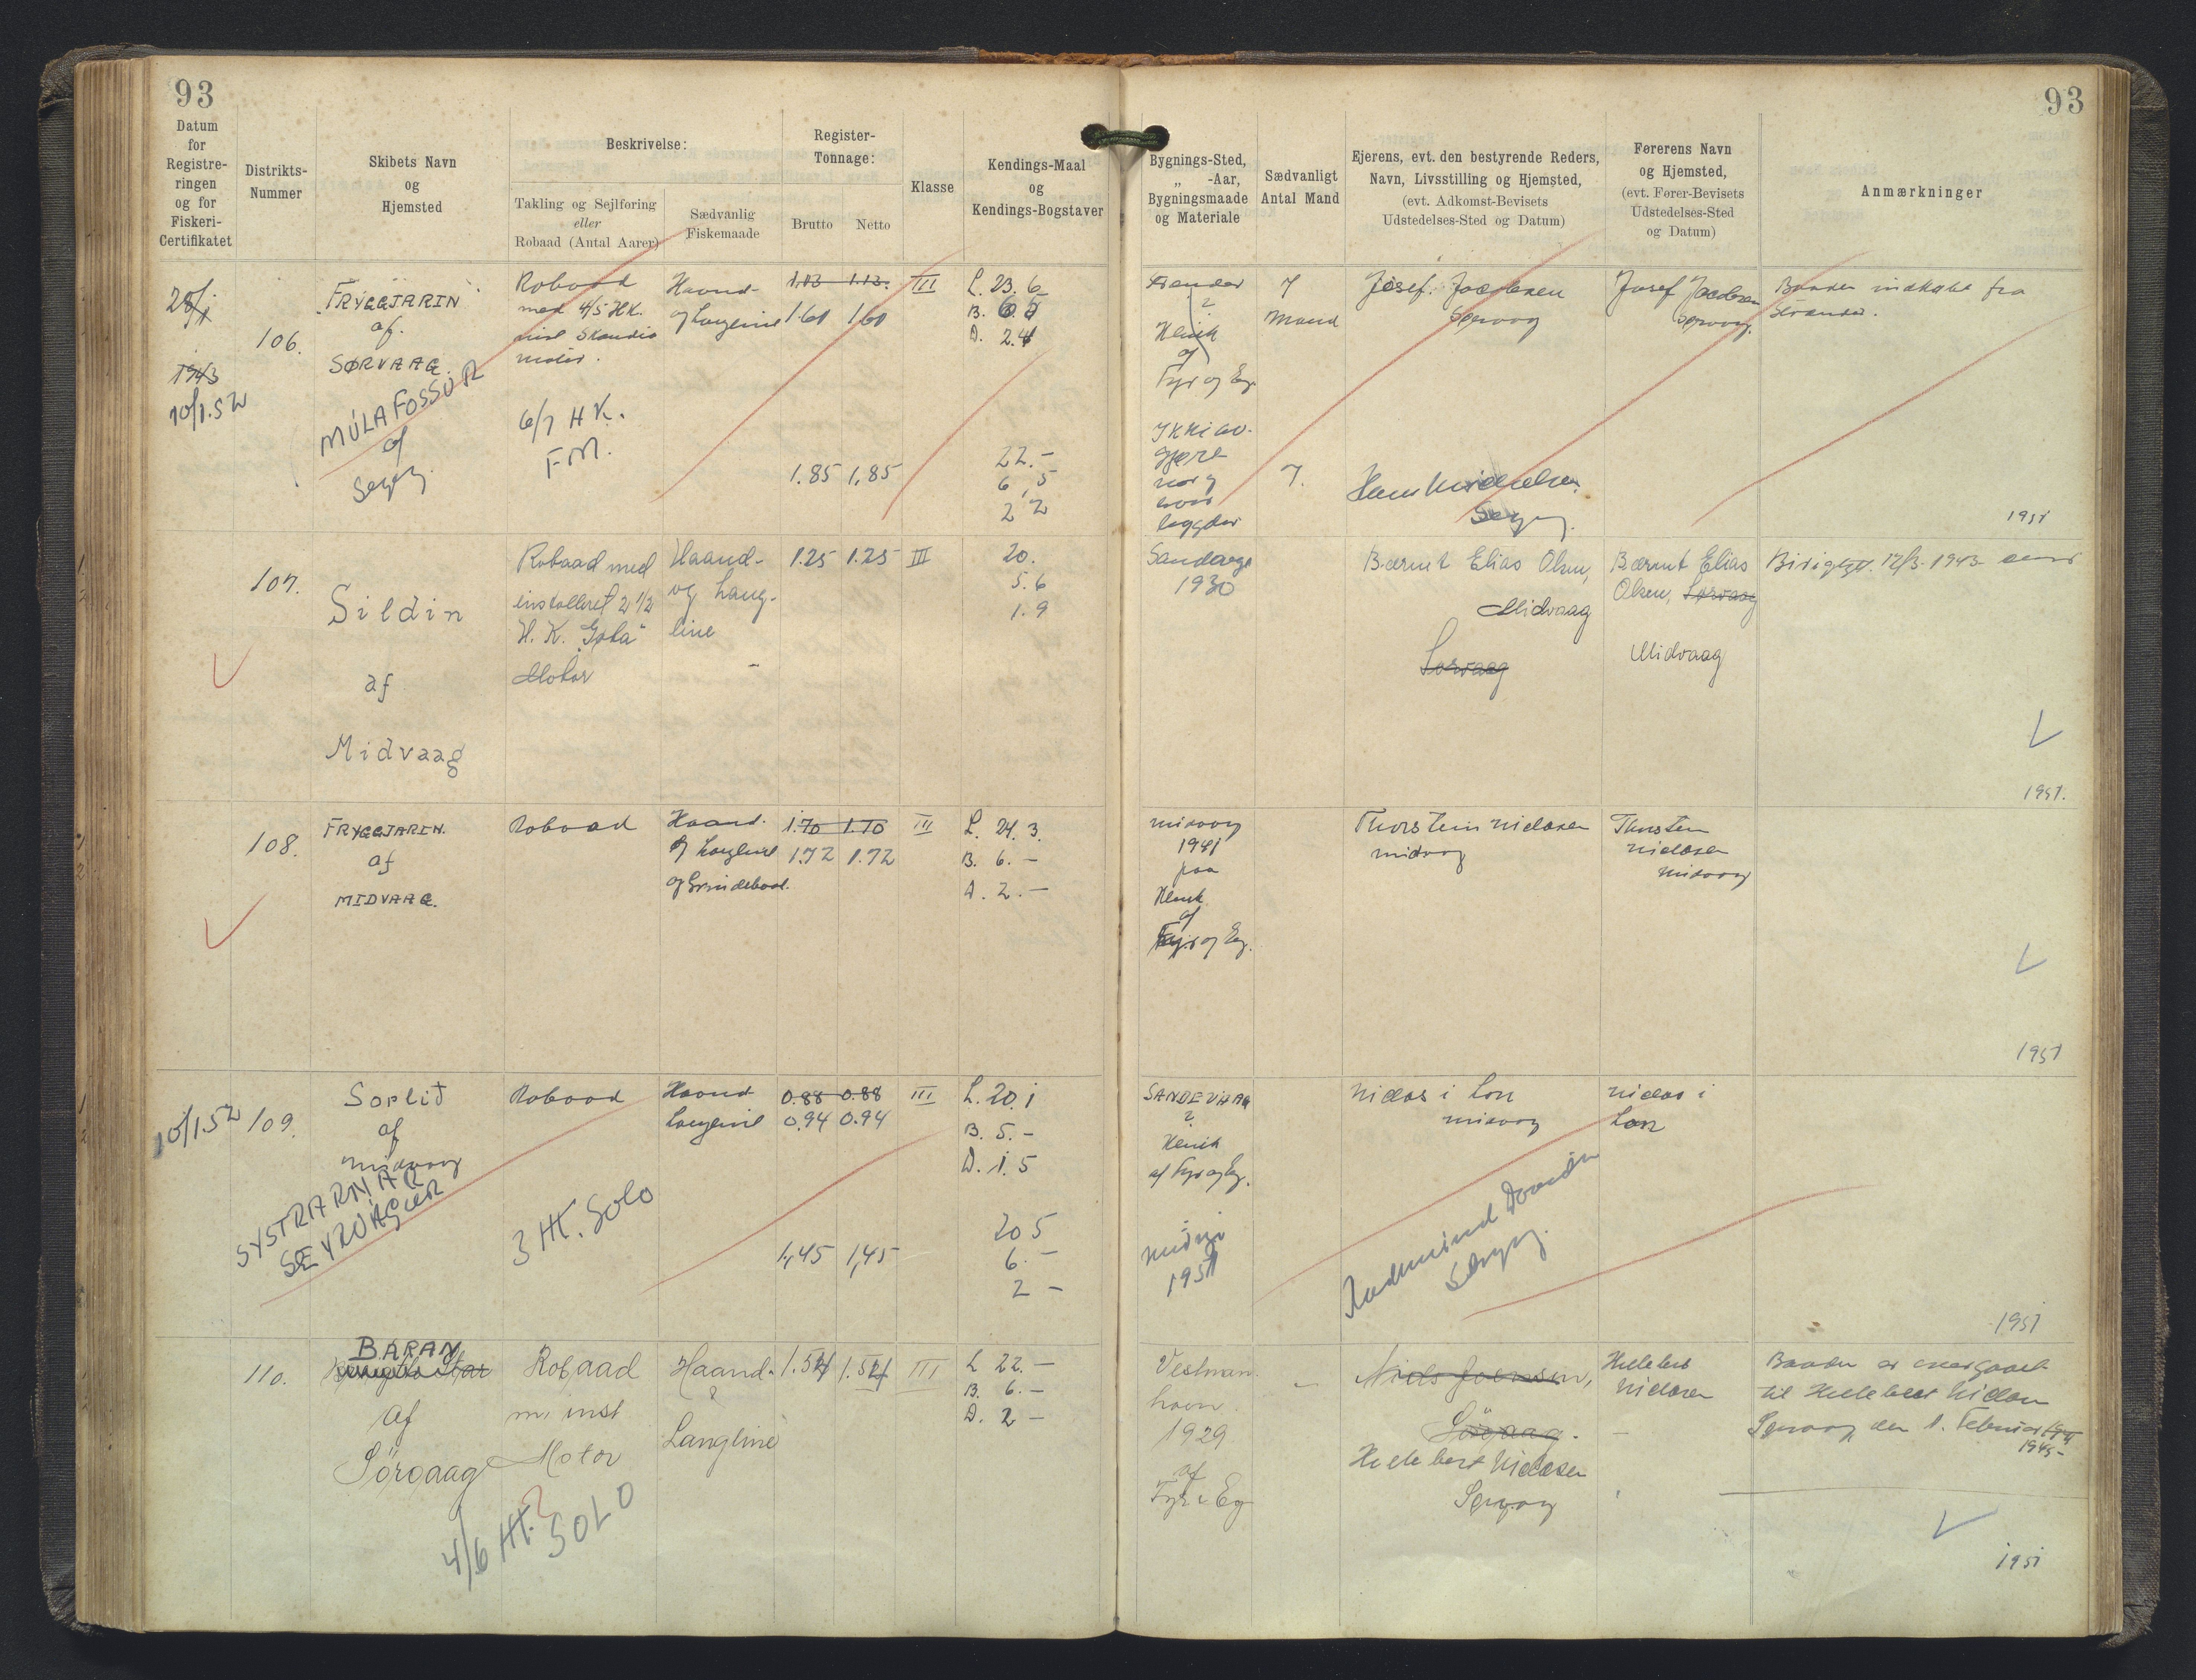 93
93
Datum
for
Registre-
ringen
og for
Fiskeri-
Certifikatet
Distrikts-
Nummer
Skibets Navn
og
Hjemsted
Beskrivelse:
Takling og Sejlføring
eller
Robaad (Antal Aarer)
Sædvanlig
Fiskemaade
Register-
Tonnage:
Brutto
Netto
Klasse
Kendings-Maal
og
Kendings-Bogstaver
Bygnings-Sted,
„ -Aar,
Bygningsmaade
og Materiale
Sædvanligt
Antal Mand
Ejerens, evt. den bestyrende Reders,
Navn, Livsstilling og Hjemsted,
(evt. Adkomst-Bevisets
Udstedelses-Sted og Datum)
Førerens Navn
og Hjemsted,
(evt. Fører-Bevisets
Udstedelses-Sted
og Datum)
Anmærkninger
1943
10/1.52
106.
FRYGGJARIN
af.
SØRVAAG.
MÚLAFOSSUR
af
Robaad
med 4/5 HK.
motor.
6/7 HK.
F.M.
Haand-
og Langline
1.13 1.13.
1.60 1.60
1.85 1,85
III
L. 23. 6
B. 6. 5
D. 2. 4
22. -
6, 5
2 2
?
Klink
af
Fyr og Eg.
7
Mand
7.
Josef. Joensen
Sørvaag
Josef Joensen
Sørvaag.
Baaden indkøbt fra
1951
107.
Sildin
af
Midvaag
Robaad med
installeret 2 1/2
H. K. "Gota"
Motor
Haand-
og Lang-
line
1.25 1.25
III
20.
5. 6
1. 9
Sandavge
1930
Bærent Elias Olsen,
Midvaag
Sørvaag
Bærent Elias
Olsen, Sørvaag
Midvaag
12/3. 1943
1951.
108.
FRYGGJARIN.
af
MIDVAAG.
Robaad
Haand.
og Langline
og Grindebaad.
1.70 1.70
1.72 1.72
III
L. 24. 3.
B. 6. -
D. 2. -
Midvaag
1941
paa
Klink
af
Fyr og Eg.
Thorstein Niclasen
Midvaag
Thorstein
Niclasen
Midvaag
1951
10/1.52
109.
Sorlid
af
Midvaag
SYSTRARNAR
SEYRVÁGUR
Robaad
3 HK. Solo
Haand
Langline
0.88 0.88
0.94 0.94
1,45 1,45
III
L. 20. 1
B. 5. -
D. 1. 5
20 5
6. -
2 -
SANDEVAAG
?
Klink
af Fyr og Eg.
1951
Niclas i Lon
Midvaag
Niclas i
Lon
1951
110.
BARAN
Star
af
Sörvaag
Robaad
m. inst
Motor
4/6 HK.
SOLO
Haand-
&
Langline
1.54 1.54
III
L 22. -
B. 6. -
D. 2 -
Vestman
havn.
1929
af
Fyr & Eg
Niels Joensen,
Sörvaag.
Hildebert Niclasen
Sørvaag
Hildebert
Niclasen
Baaden er overgaaet
til Hildebert Niclasen
Sørvaag den 1. Februar
1945-
1951